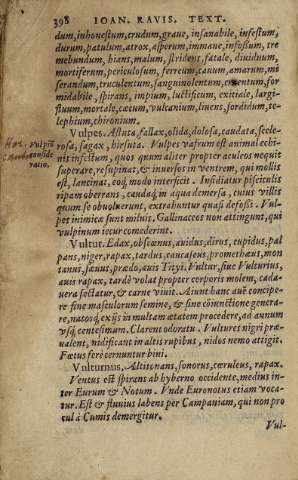 398 IOAN. RAVIS. TEXT.
dum, inhonestum, crudum, graue, insanabile, infestum,
durum, patulum, atrox, asperum, immane, infossum, tre
mebundum, hians, malum, stridens, fatale, diuidnum,
mortiferum, periculosum, ferreum, cauum, amarum, mi
serandum, truculentum, sanguinolentum, cruentum, for
midabile, spirans, impium, luctificum, exitiale, largi-
fluum, mortale, cæcum, vulcanium, linens, sordidum, te-
lephium, chironium.
Vulpes. Astuta, fallax, olida, dolosa, caudata, scele-
rosa, sagax, hirsuta. Vulpes vafrum est animal echi-
nis infestum, quos quum aliter propter aculeos nequit
superare, resupinat, & inuersos in ventrem, qui mollis
est, lancinat, eoq́; modo interficit. Insidiatur pisciculis
ripam oberrans, caudaq́; in aqua demersa, cuius villis
quum se obuoluerunt, extrahuntur quasi defossi. Vul-
pes inimicæ sunt miluis. Gallinaceos non attingunt, qui
vulpinum iecur comederint.
vulpiũ
conside
ratio.
Vultur. Edax, obscœnus, auidus, dirus, cupidus, pal
pans, niger, rapax, tardus, caucaseus, prometheus, mon
tanus, sæuus, prædo, auis Tityi. Vultur, siue Vulturius,
auis rapax, tardè volat propter corporis molem, cada-
uera sectatur, & carne viuit. Aiunt hanc auẽ concipe-
re sine masculorum semine, & sine cõiunctione genera-
re, natosq́; ex ijs in multam ætatem procedere, ad annum
vsq́; centesimum. Clarent odoratu. Vultures nigri præ-
ualent, nidificant in altis rupibus, nidos nemo attigit.
Fœtus ferè cernuntur bini.
Vulturnus. Altitonans, sonorus, cæruleus, rapax.
Ventus est spirans ab hyberno occidente, medius in-
ter Eurum & Notum. Vnde Euronotus etiam voca-
tur. Est & fluuius labens per Campaniam, qui non pro
cul à Cumis demergitur.
Vul-